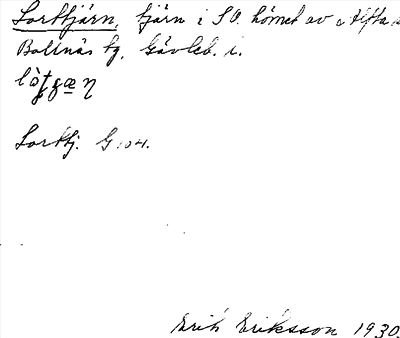 Lorttjärn, tjärn i SO. hörnet av Alfta s
Bollnäs tg. Gävleb. l.
Lorttj. G 104.
Erik Eriksson 1930.